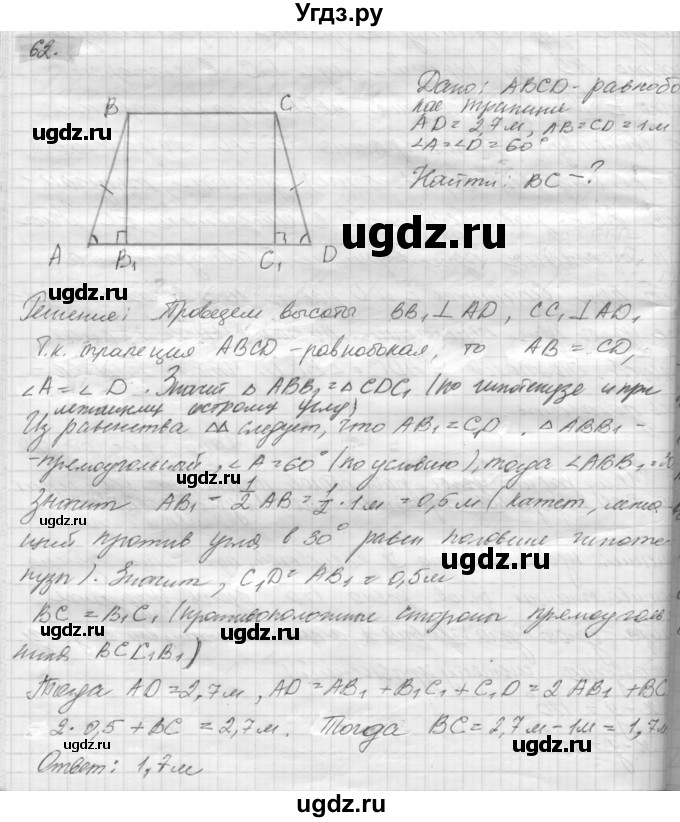 Угдз.ру
62.
Дано: ABCD - равнобо
кая трапеция
AD = 2,7 м, AB = CD = 1 м
∠A = ∠D = 60°
Найти: BC - ?
B C
A B₁ C₁ D
ugdz.ru
ugdz.ru
ugdz.ru
ugdz.ru
Решение: Проведем высоты BB₁ ⊥ AD, CC₁ ⊥ AD,
Т.к. трапеция ABCD - равнобокая, то AB = CD,
∠A = ∠D. Значит △ABB₁ = △CDC₁ (по гипотенузе и при
лежащему острому углу)
Из равенства △△ следует, что AB₁ = C₁D. △ABB₁ -
- прямоугольный, ∠A = 60° (по условию), тогда ∠ABB₁ = 30
ugdz.ru
ugdz.ru
Значит AB₁ = 1/2 AB = 1/2 · 1 м = 0,5 м (катет, лежа
щий против угла в 30° равен половине гипоте
нузы). Значит, C₁D = AB₁ = 0,5 м
BC = B₁C₁ (противоположные стороны прямоуголь
ника BCC₁B₁)
ugdz.ru
ugdz.ru
Тогда AD = 2,7 м, AD = AB₁ + B₁C₁ + C₁D = 2AB₁ + BC
2 · 0,5 + BC = 2,7 м. Тогда BC = 2,7 м - 1 м = 1,7 м
Ответ: 1,7 м
ugdz.ru
ugdz.ru
ugdz.ru